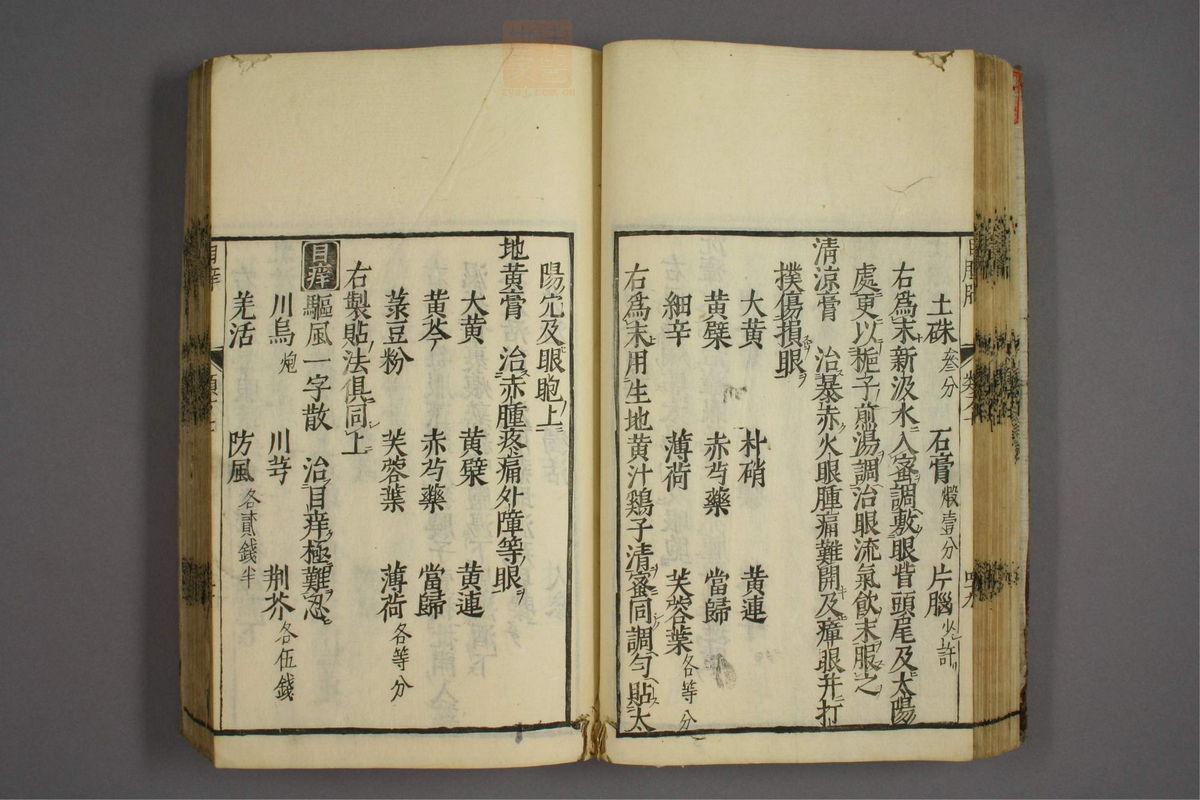 土硃 叄分 石膏 煅壹分 片腦 少許
右為末新汲水入蜜調敷眼眥頭尾及太陽
處更以梔子煎湯調治眼流氣飲末服之
清涼膏 治暴赤火眼腫痛難開及瘴眼并打
撲傷損眼
大黃 朴硝 黃連
黃檗 赤芍藥 當歸
細辛 薄荷 芙蓉葉 各等分
右為末用生地黃汁鷄子清蜜同調勻貼太
陽穴及眼胞上
地黃膏 治赤腫疼痛外障等眼
大黃 黃檗 黃連
黃芩 赤芍藥 當歸
菉豆粉 芙蓉葉 薄荷 各等分
右製貼法俱同上
目痒 驅風一字散 治目痒極難忍
川烏 炮 川芎 荆芥 各伍錢
羌活 防風 各貳錢半